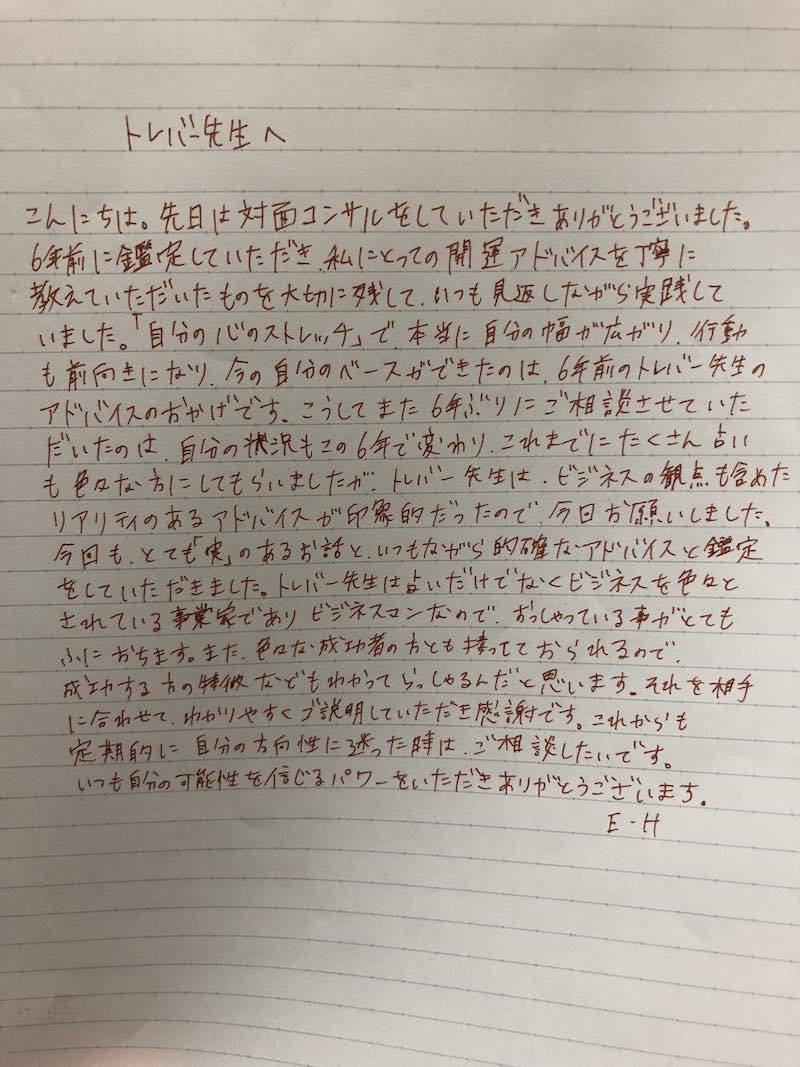 トレバー先生へ
こんにちは。先日は対面コンサルをしていただきありがとうございました。
6年前に鑑定していただき、私にとっての開運アドバイスを丁寧に
教えていただいたものを大切に残して、いつも見返しながら実践して
いました。「自分の心のストレッチ」で、本当に自分の幅が広がり、行動
も前向きになり、今の自分のベースができたのは、6年前のトレバー先生の
アドバイスのおかげです。こうしてまた6年ぶりにご相談させていた
だいたのは、自分の状況もこの6年で変わり、これまでにたくさん占い
も色々な方にしてもらいましたが、トレバー先生は、ビジネスの観点も含めた
リアリティのあるアドバイスが印象的だったので、今日お願いしました。
今回も、とても「実」のあるお話と、いつもながら的確なアドバイスと鑑定
をしていただきました。トレバー先生は占いだけでなくビジネスを色々と
されている事業家でありビジネスマンなので、おっしゃっている事がとても
ふにおちます。また、色々な成功者の方とも接ってておられるので、
成功する方の特徴などもわかってらっしゃるんだと思います。それを相手
に合わせて、わかりやすくご説明していただき感謝です。これからも
定期的に自分の方向性に迷った時は、ご相談したいです。
いつも自分の可能性を信じるパワーをいただきありがとうございます。
E-H